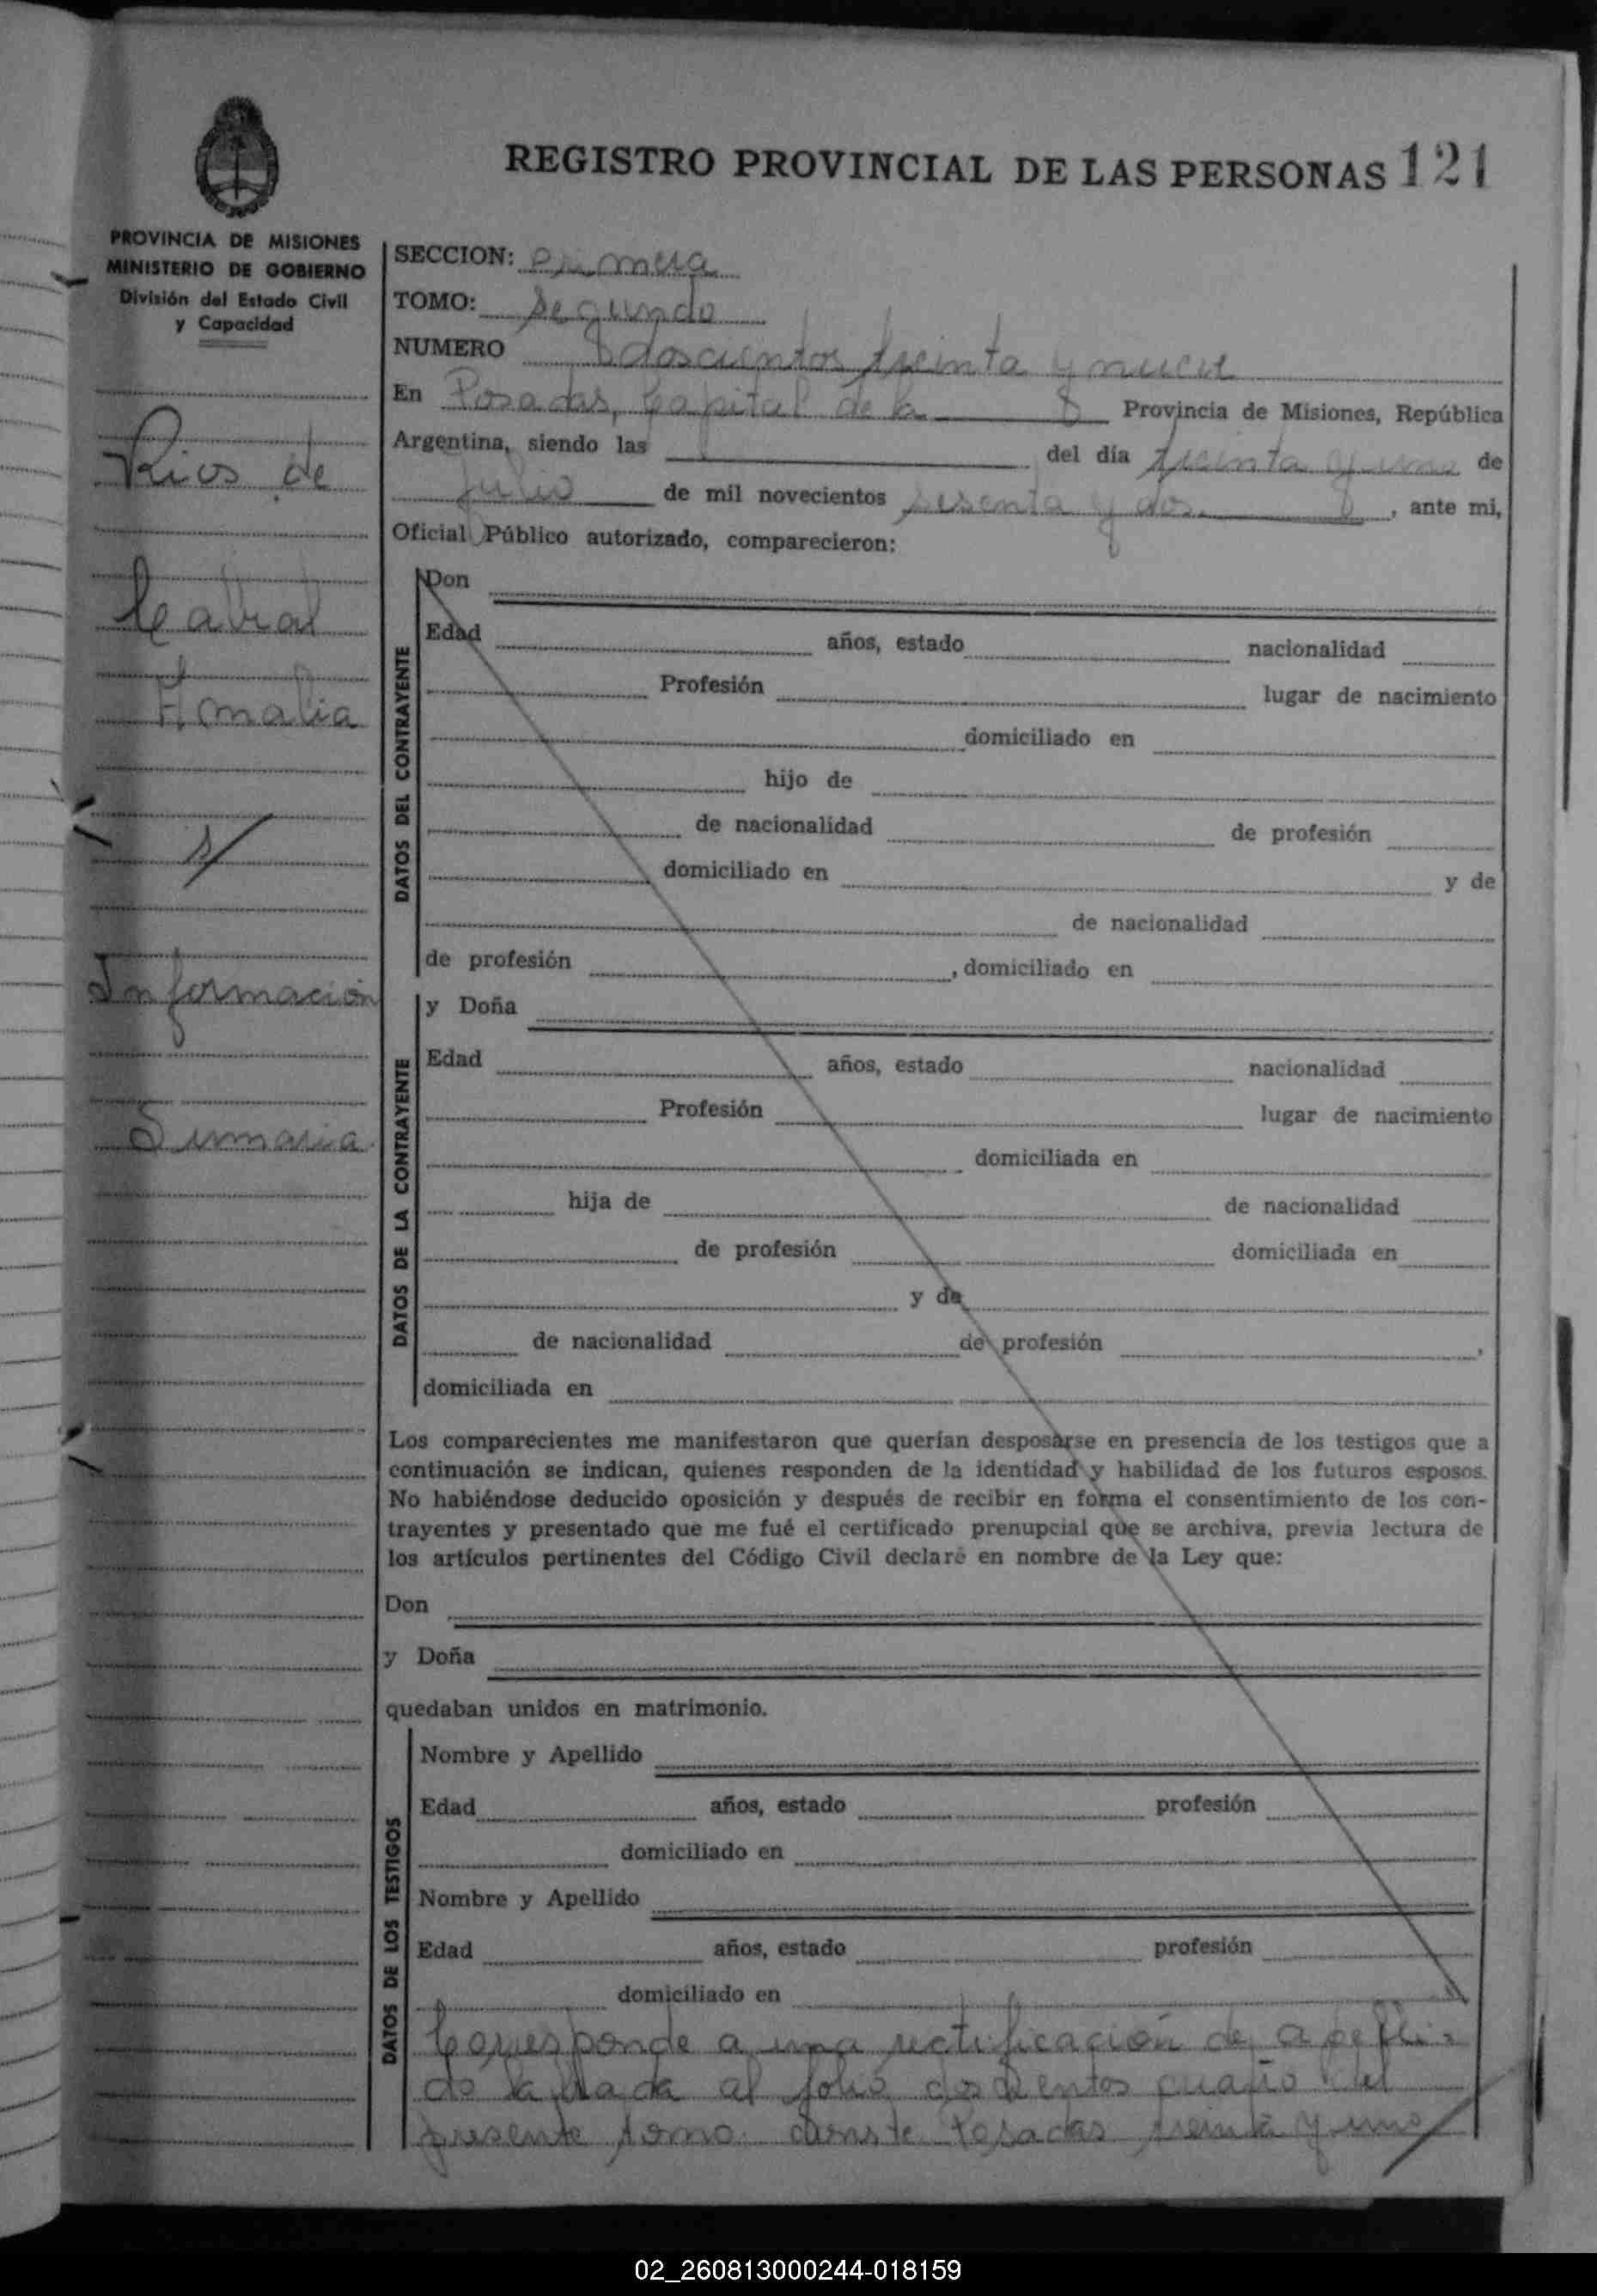 REGISTRO PROVINCIAL DE LAS PERSONAS 121
PROVINCIA DE MISIONES
MINISTERIO DE GOBIERNO
División del Estado Civil
y Capacidad
Rios de
Cabral
Amalia
s/
Información
Sumaria.
SECCION: Primera
TOMO: Segundo
NUMERO doscientos treinta y nueve
En Posadas, Capital de la Provincia de Misiones, República
Argentina, siendo las del día treinta y uno de
Julio de mil novecientos sesenta y dos. , ante mi,
Oficial Público autorizado, comparecieron:
DATOS DEL CONTRAYENTE
Don
Edad años, estado nacionalidad
Profesión lugar de nacimiento
domiciliado en
hijo de
de nacionalidad de profesión
domiciliado en y de
de nacionalidad
de profesión , domiciliado en
DATOS DE LA CONTRAYENTE
y Doña
Edad años, estado nacionalidad
Profesión lugar de nacimiento
domiciliada en
hija de de nacionalidad
de profesión domiciliada en
y de
de nacionalidad de profesión ,
domiciliada en
Los comparecientes me manifestaron que querían desposarse en presencia de los testigos que a
continuación se indican, quienes responden de la identidad y habilidad de los futuros esposos.
No habiéndose deducido oposición y después de recibir en forma el consentimiento de los con-
trayentes y presentado que me fué el certificado prenupcial que se archiva, previa lectura de
los artículos pertinentes del Código Civil declaré en nombre de la Ley que:
Don
y Doña
quedaban unidos en matrimonio.
DATOS DE LOS TESTIGOS
Nombre y Apellido
Edad años, estado profesión
domiciliado en
Nombre y Apellido
Edad años, estado profesión
domiciliado en
Corresponde a una rectificación de apelli-
do labrada al folio doscientos cuatro del
presente tomo. conste Posadas treinta y uno
02_260813000244-018159